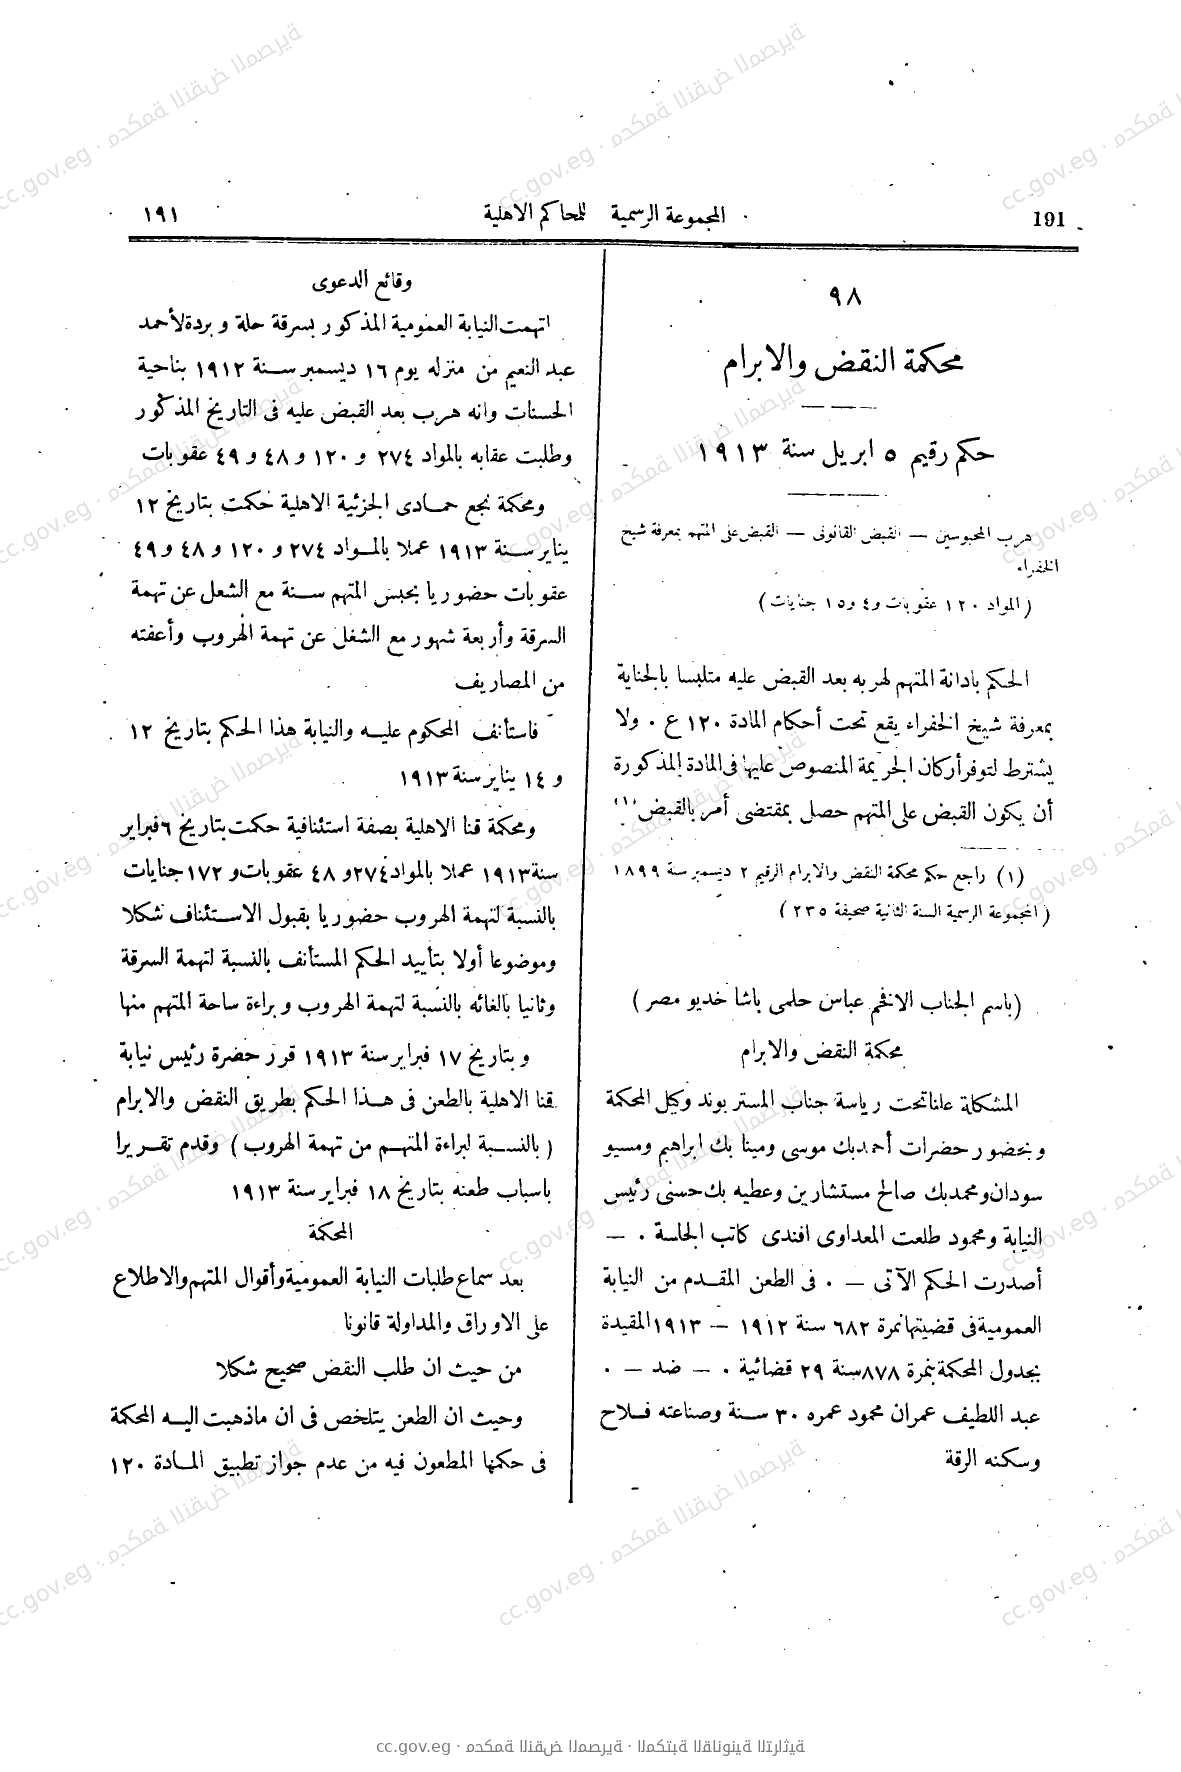 191
المجموعة الرسمية للمحاكم الاهلية
١٩١
٩٨
محكمة النقض والابرام
حكم رقيم ٥ ابريل سنة ١٩١٣
هرب المحبوسين — القبض القانونى — القبض على المتهم بمعرفة شيخ
الخفراء
(المواد ١٢٠ عقوبات و٤ و١٥ جنايات)
الحكم بادانة المتهم لهربه بعد القبض عليه متلبسا بالجناية
بمعرفة شيخ الخفراء يقع تحت أحكام المادة ١٢٠ ع . ولا
يشترط لتوفر أركان الجريمة المنصوص عليها فى المادة المذكورة
أن يكون القبض على المتهم حصل بمقتضى أمر بالقبض (١)
(١) راجع حكم محكمة النقض والابرام الرقيم ٢ ديسمبر سنة ١٨٩٩
(المجموعة الرسمية السنة الثانية صحيفة ٢٣٥)
(باسم الجناب الافخم عباس حلمى باشا خديو مصر)
محكمة النقض والابرام
المشكلة علنا تحت رياسة جناب المستر بوند وكيل المحكمة
وبحضور حضرات أحمد بك موسى ومينا بك ابراهيم ومسيو
سودان ومحمد بك صالح مستشارين وعطيه بك حسنى رئيس
النيابة ومحمود طلعت المعداوى افندى كاتب الجلسة . —
أصدرت الحكم الآتى — . فى الطعن المقدم من النيابة
العمومية فى قضيتها نمرة ٦٨٢ سنة ١٩١٢ — ١٩١٣ المقيدة
بجدول المحكمة بنمرة ٨٧٨ سنة ٢٩ قضائية . — ضد — .
عبد اللطيف عمران محمود عمره ٣٠ سنة وصناعته فلاح
وسكنه الرقة
وقائع الدعوى
اتهمت النيابة العمومية المذكور بسرقة حلة وبردة لأحمد
عبد النعيم من منزله يوم ١٦ ديسمبر سنة ١٩١٢ بناحية
الحسنات وانه هرب بعد القبض عليه فى التاريخ المذكور
وطلبت عقابه بالمواد ٢٧٤ و ١٢٠ و ٤٨ و ٤٩ عقوبات
ومحكمة نجع حمادى الجزئية الاهلية حكمت بتاريخ ١٢
يناير سنة ١٩١٣ عملا بالمواد ٢٧٤ و ١٢٠ و ٤٨ و ٤٩
عقوبات حضوريا بحبس المتهم سنة مع الشغل عن تهمة
السرقة وأربعة شهور مع الشغل عن تهمة الهروب وأعفته
من المصاريف
فاستأنف المحكوم عليه والنيابة هذا الحكم بتاريخ ١٢
و ١٤ يناير سنة ١٩١٣
ومحكمة قنا الاهلية بصفة استئنافية حكمت بتاريخ ٦ فبراير
سنة ١٩١٣ عملا بالمواد ٢٧٤ و ٤٨ عقوبات و ١٧٢ جنايات
بالنسبة لتهمة الهروب حضوريا بقبول الاستئناف شكلا
وموضوعا أولا بتأييد الحكم المستأنف بالنسبة لتهمة السرقة
وثانيا بالغائه بالنسبة لتهمة الهروب وبراءة ساحة المتهم منها
وبتاريخ ١٧ فبراير سنة ١٩١٣ قرر حضرة رئيس نيابة
قنا الاهلية بالطعن فى هذا الحكم بطريق النقض والابرام
(بالنسبة لبراءة المتهم من تهمة الهروب) وقدم تقريرا
باسباب طعنه بتاريخ ١٨ فبراير سنة ١٩١٣
المحكمة
بعد سماع طلبات النيابة العمومية وأقوال المتهم والاطلاع
على الاوراق والمداولة قانونا
من حيث ان طلب النقض صحيح شكلا
وحيث ان الطعن يتلخص فى ان ماذهبت اليه المحكمة
فى حكمها المطعون فيه من عدم جواز تطبيق المادة ١٢٠
cc.gov.eg · محكمة النقض المصرية · المكتبة القانونية التراثية